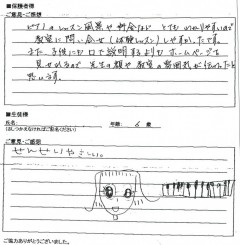 ■保護者様
ご意見・ご感想
ピアノのレッスン風景や料金など とても分かりやすいので
教室に問い合せ(体験レッスン)しやすかったです。
また、子供にも口で説明するよりもホームページを
見せれるので 先生の顔や教室の雰囲気が伝わったと
思います。
■生徒様
氏名:
年齢: 6 歳
(差しつかえなければご記名ください)
ご意見・ご感想
せんせいやさしい。
ご協力ありがとうございました。